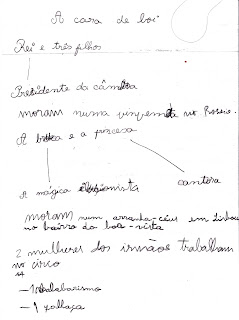 A casa de boi
Rei e três filhos
Presidente da câmara
moram numa no Rossio.
A bruxa e a princesa
A mágica ilusionista
cantora
moram num arranha-céus em Lisboa
no bairro da boa-vista
2 mulheres dos irmãos trabalham
no circo
- 1 malabarismo
- 1 palhaça